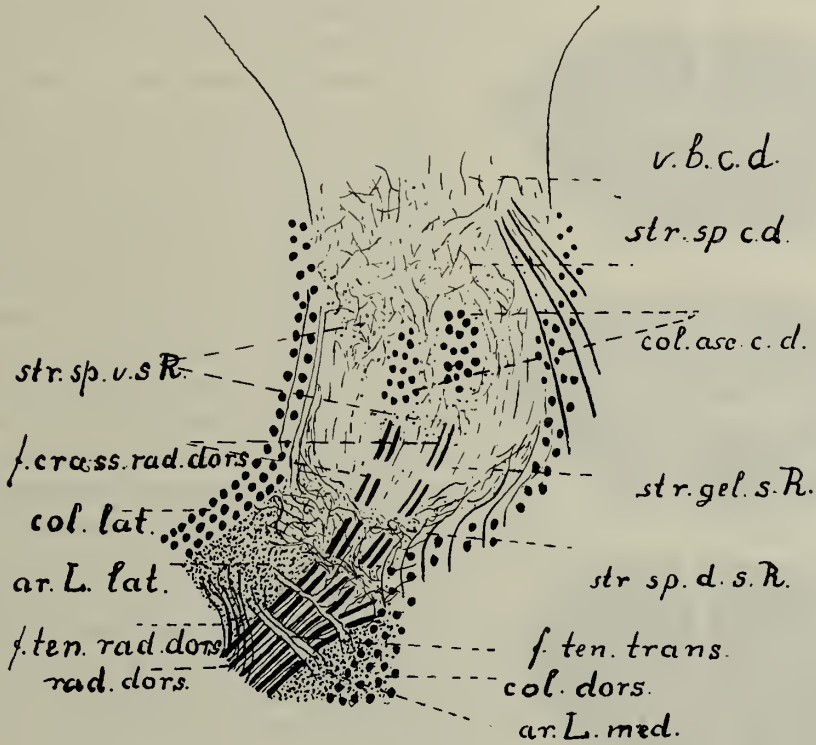 v.b.c.d.
str.sp c.d.
col.asc.c.d.
str.sp.v.s R.
f.crass.rad.dors.
str.gel.s.R.
col.lat.
ar.L.lat.
str sp.d.s.R.
f.ten.rad.dors
f.ten.trans.
rad.dors.
col.dors.
ar.L.med.